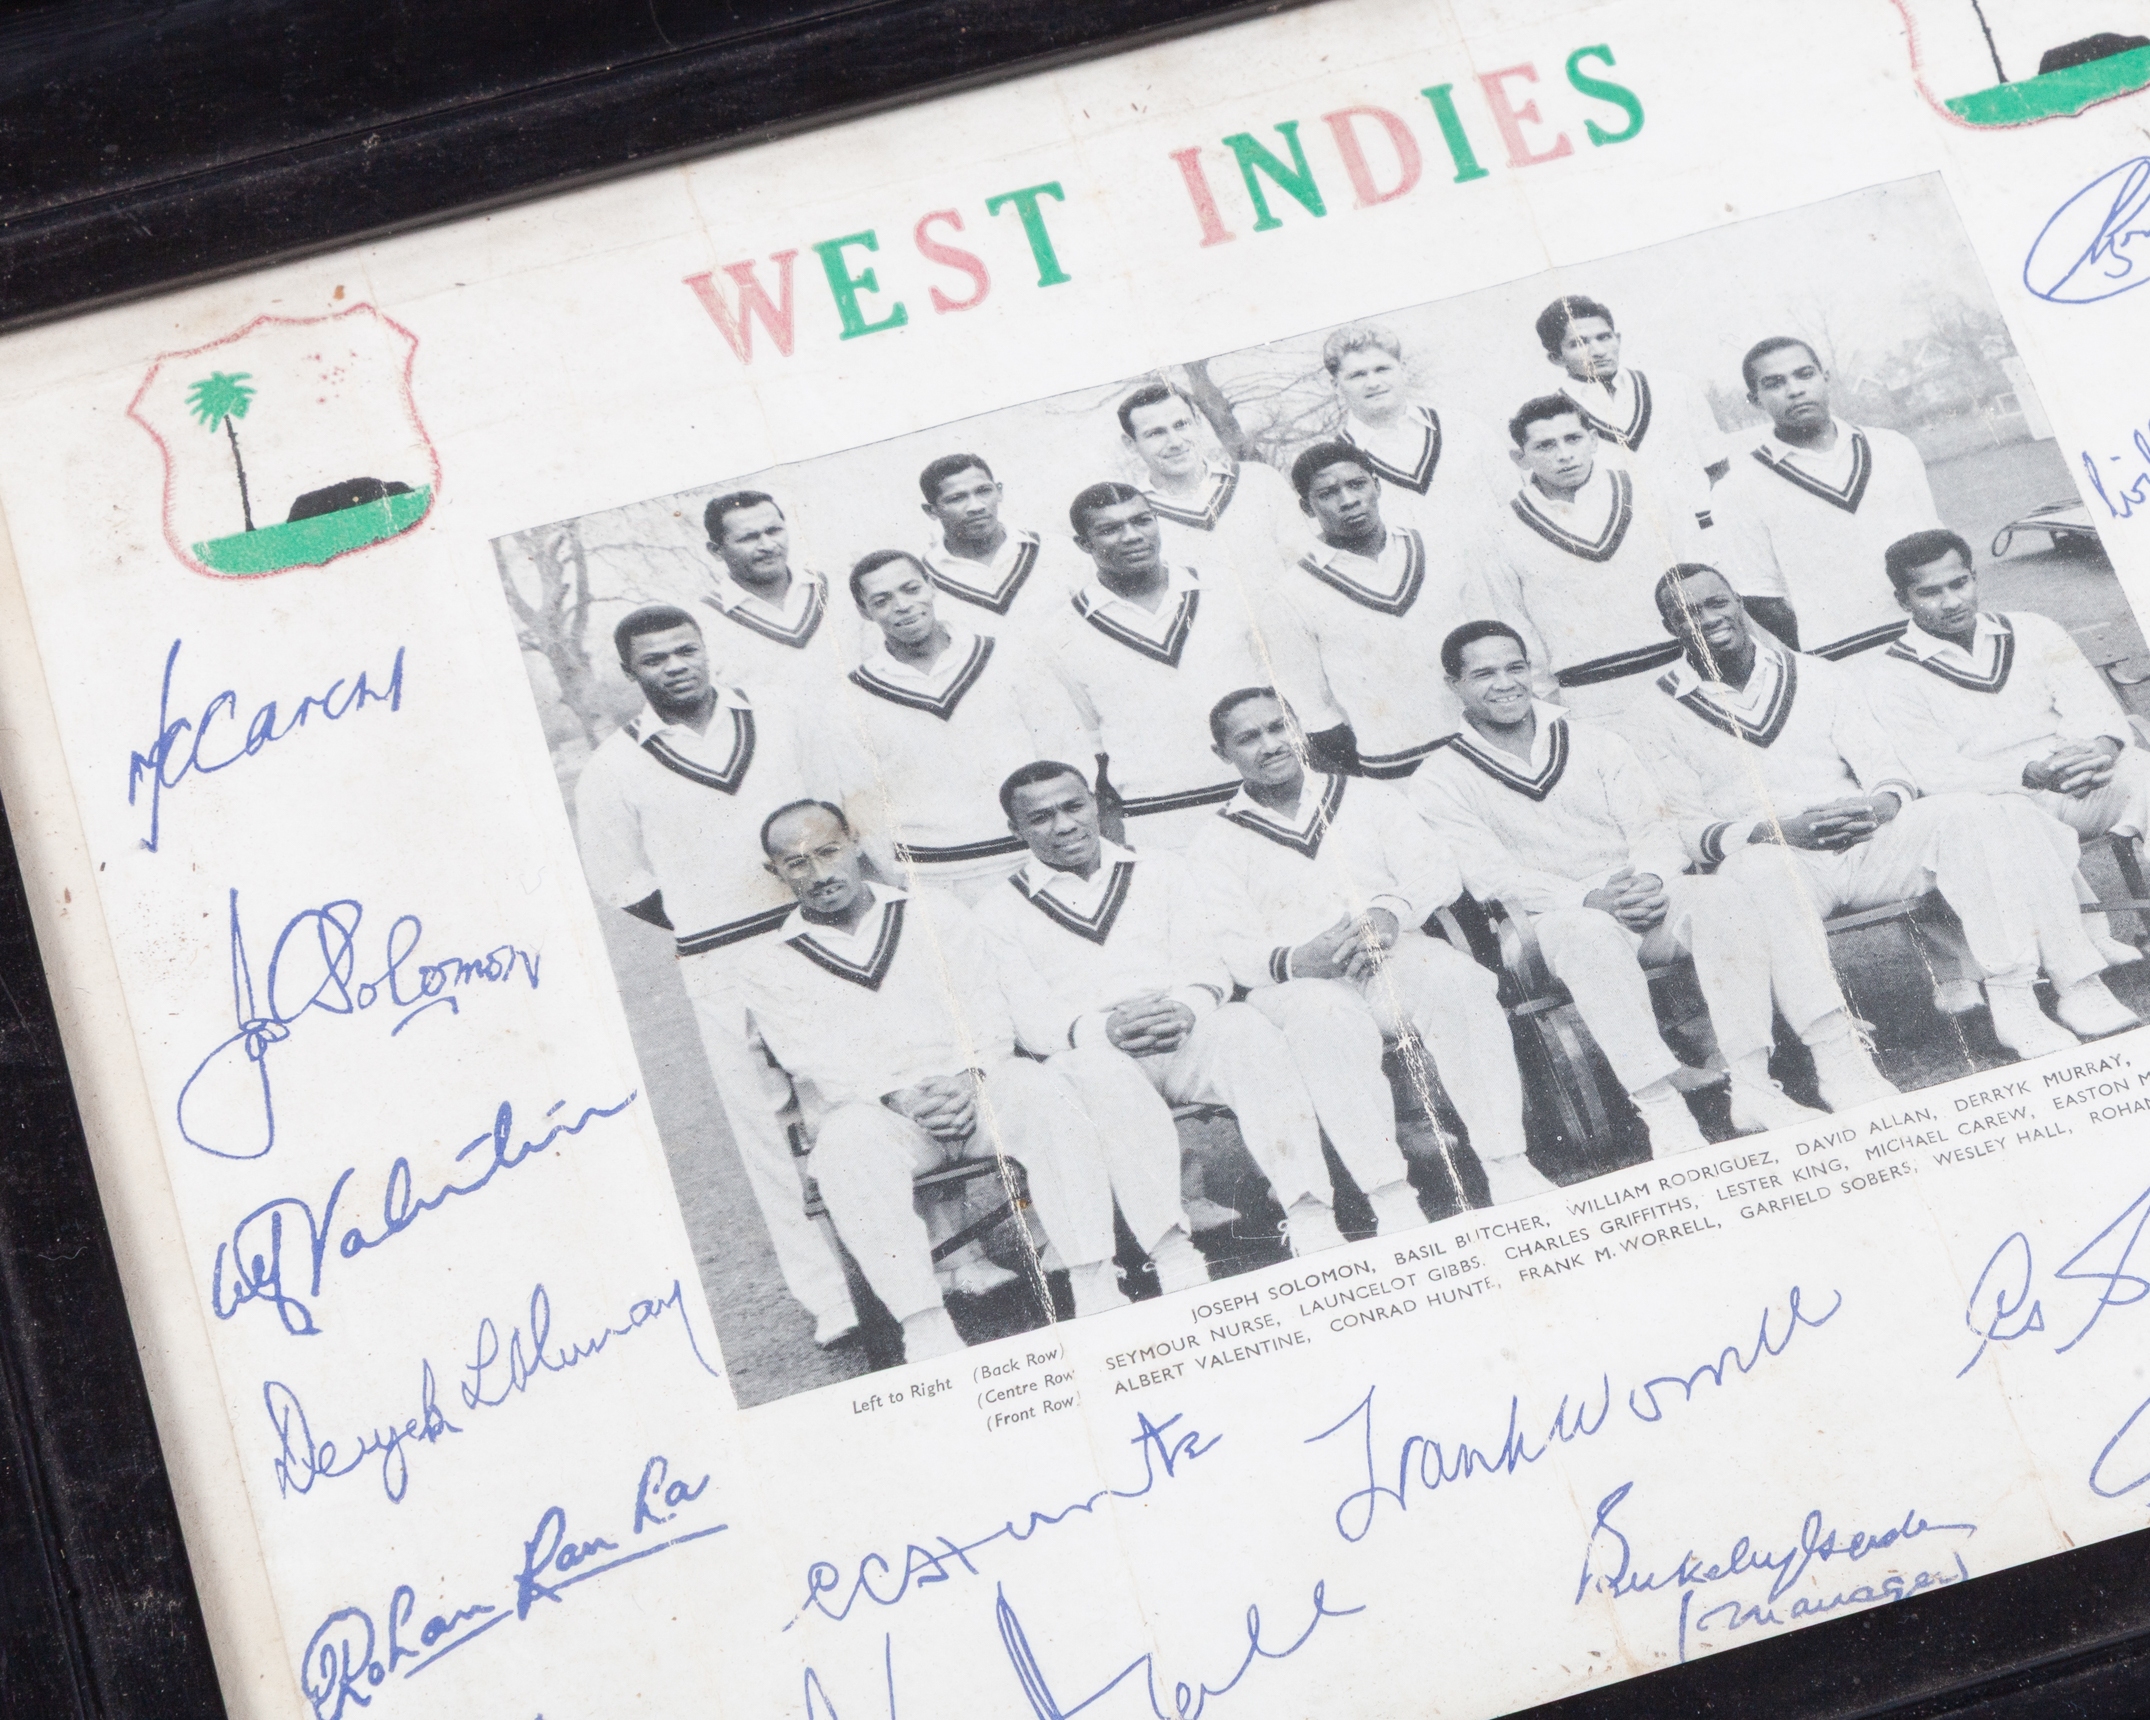 WEST INDIES
McCarew
Jos Solomon
Alf Valentine
Deryck L Murray
Rohan Kanhai
Left to Right (Back Row) JOSEPH SOLOMON, BASIL BUTCHER, WILLIAM RODRIGUEZ, DAVID ALLAN, DERRYK MURRAY,
(Centre Row) SEYMOUR NURSE, LAUNCELOT GIBBS, CHARLES GRIFFITHS, LESTER KING, MICHAEL CAREW, EASTON M
(Front Row) ALBERT VALENTINE, CONRAD HUNTE, FRANK M. WORRELL, GARFIELD SOBERS, WESLEY HALL, ROHAN
CC Hunte
Frank Worrell
Berkeley Gaskin
(manager)